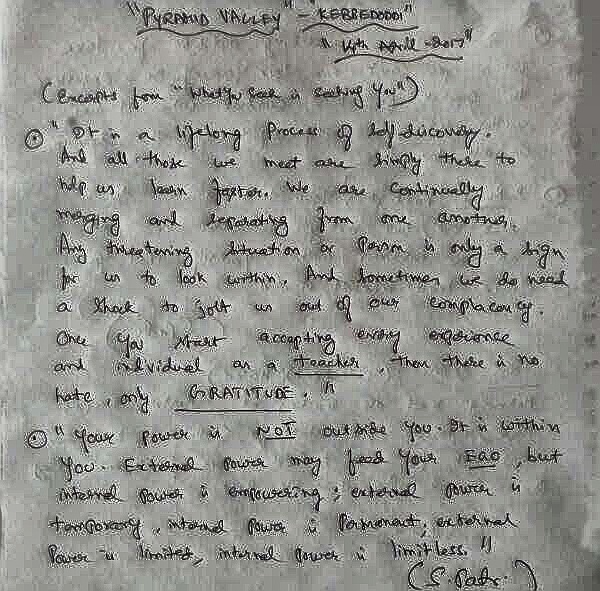 "PYRAMID VALLEY" - "KEBBEDODDI"
"14th April - 2017"
(Excerpts from "What You Seek is Seeking You")
"It is a lifelong process of self discovery.
And all those we meet are simply there to
help us learn faster. We are continually
merging and separating from one another.
Any threatening situation or person is only a sign
for us to look within, And sometimes we do need
a shock to jolt us out of our complacency.
Once you start accepting every experience
and individual as a teacher, then there is no
hate, only GRATITUDE."
"Your power is NOT outside you. It is within
you. External power may feed your EGO, but
internal power is empowering; external power is
temporary, internal power is permanent; external
power is limited, internal power is limitless."
(S. Patr.)